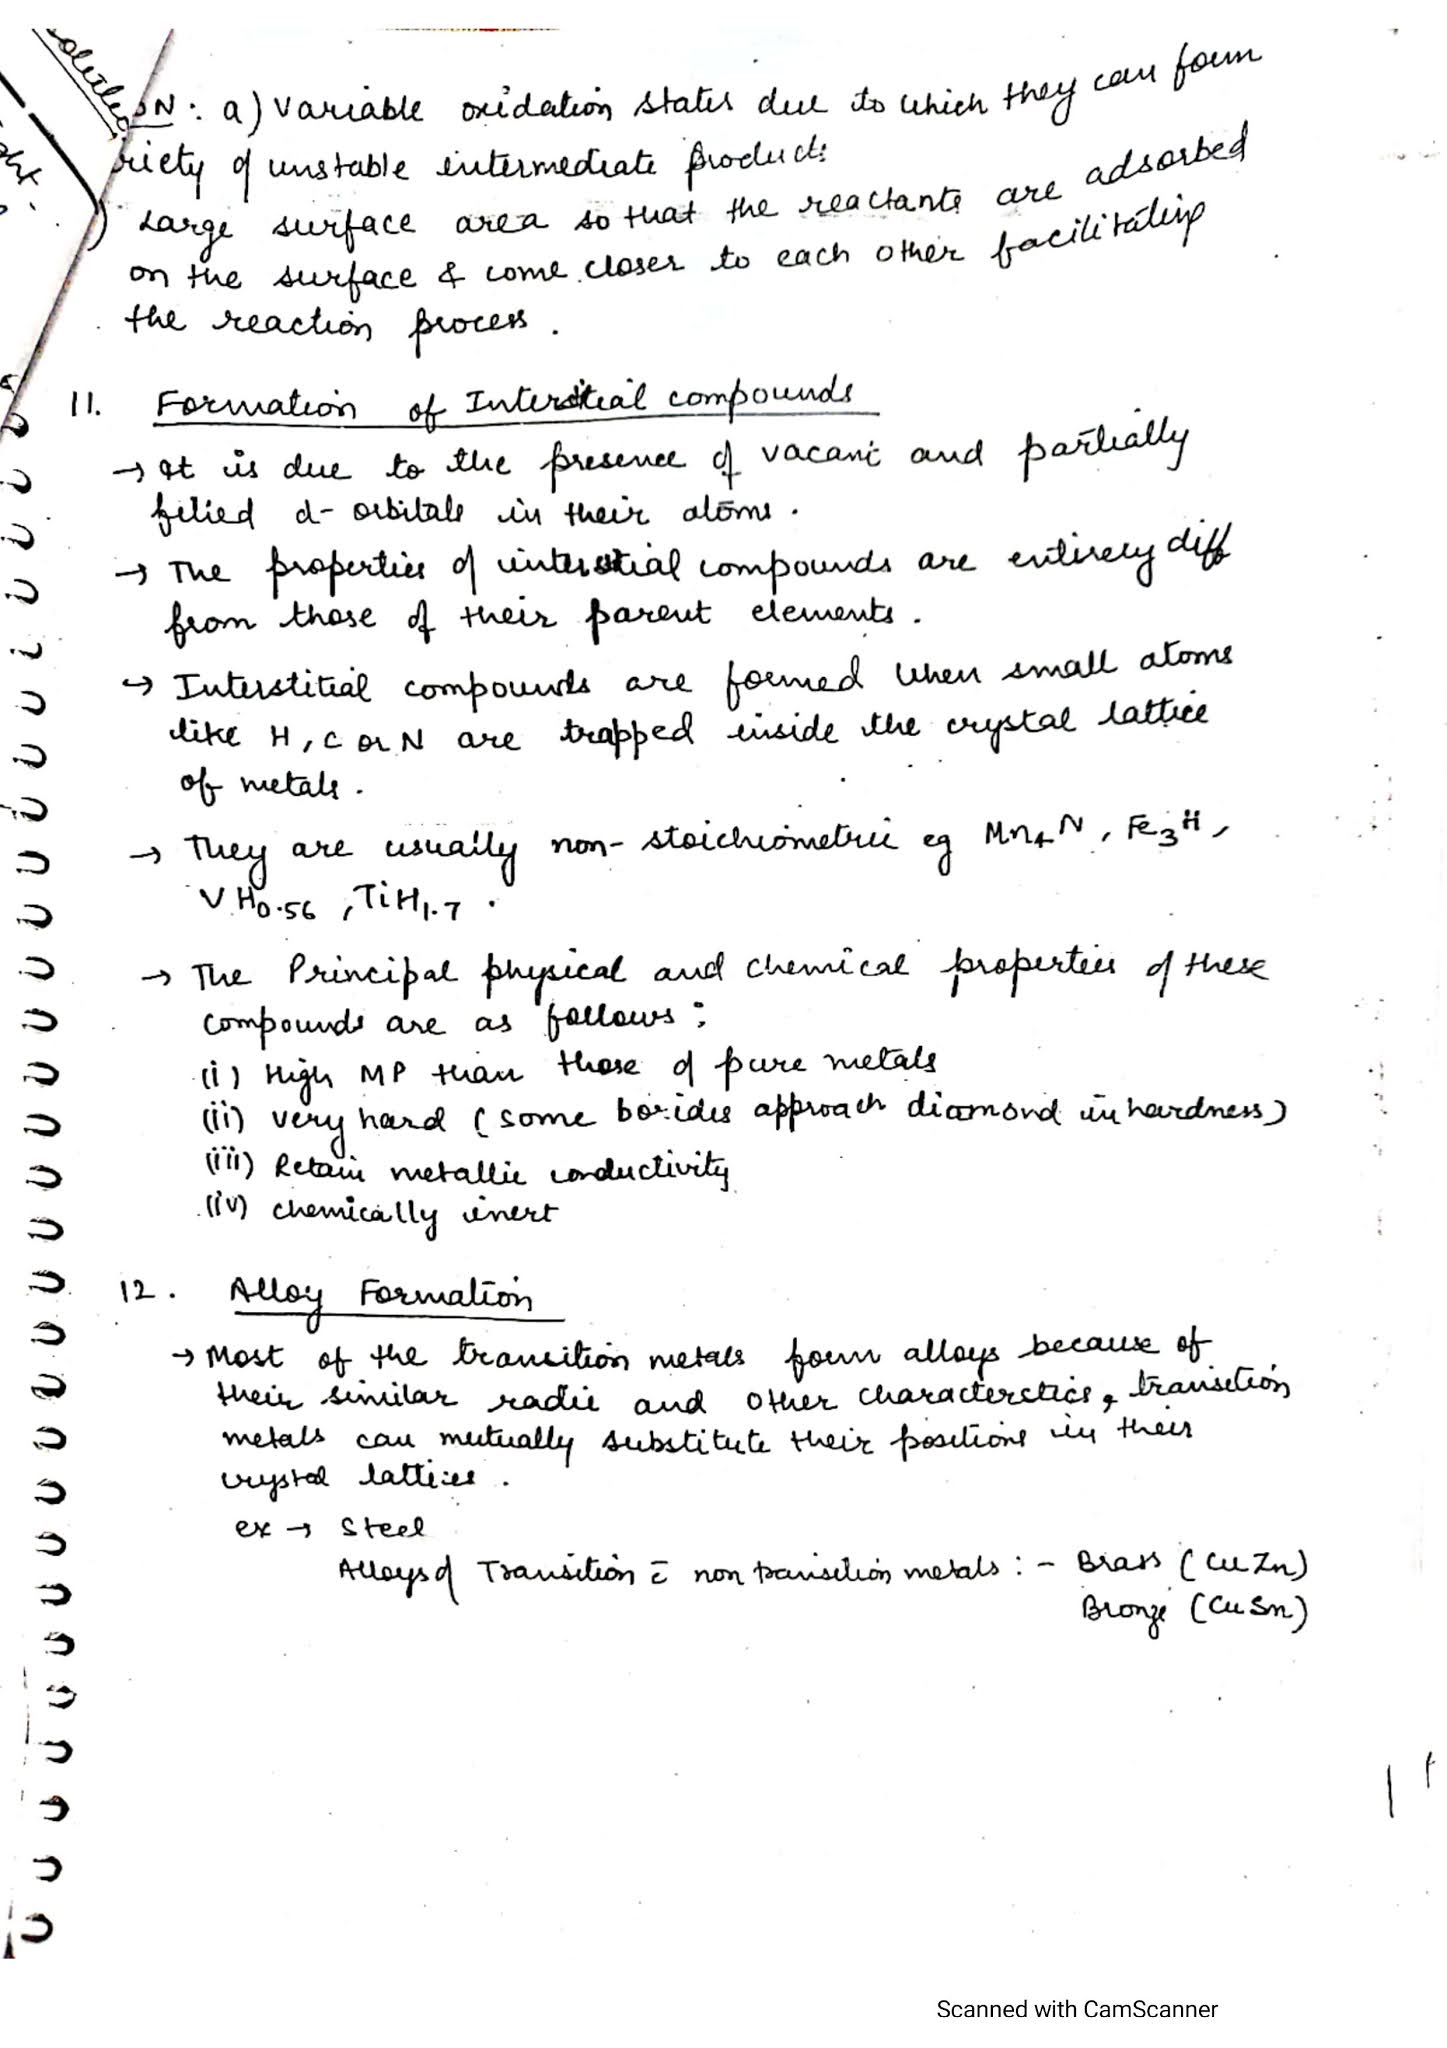 ON : a) Variable oxidation states due to which they can form
riety of unstable intermediate products
) Large surface area so that the reactants are adsorbed
on the surface & come closer to each other facilitating
the reaction process .
11. Formation of Interstitial compounds
→ It is due to the presence of vacant and partially
filled d- orbitals in their atoms .
→ The properties of interstitial compounds are entirely diff
from those of their parent elements .
→ Interstitial compounds are formed when small atoms
like H, C or N are trapped inside the crystal lattice
of metals .
→ They are usually non- stoichiometric eg Mn₄N , Fe₃H ,
VH₀.₅₆ , TiH₁.₇ .
→ The Principal physical and chemical properties of these
compounds are as follows :
(i) High MP than those of pure metals
(ii) very hard (some borides approach diamond in hardness)
(iii) Retain metallic conductivity
(iv) chemically inert
12 . Alloy Formation
→ Most of the transition metals form alloys because of
their similar radii and other characterstics, transition
metals can mutually substitute their positions in their
crystal lattices .
ex → Steel
Alloys of Transition c̄ non transition metals : - Brass (CuZn)
Bronze (CuSn)
Scanned with CamScanner